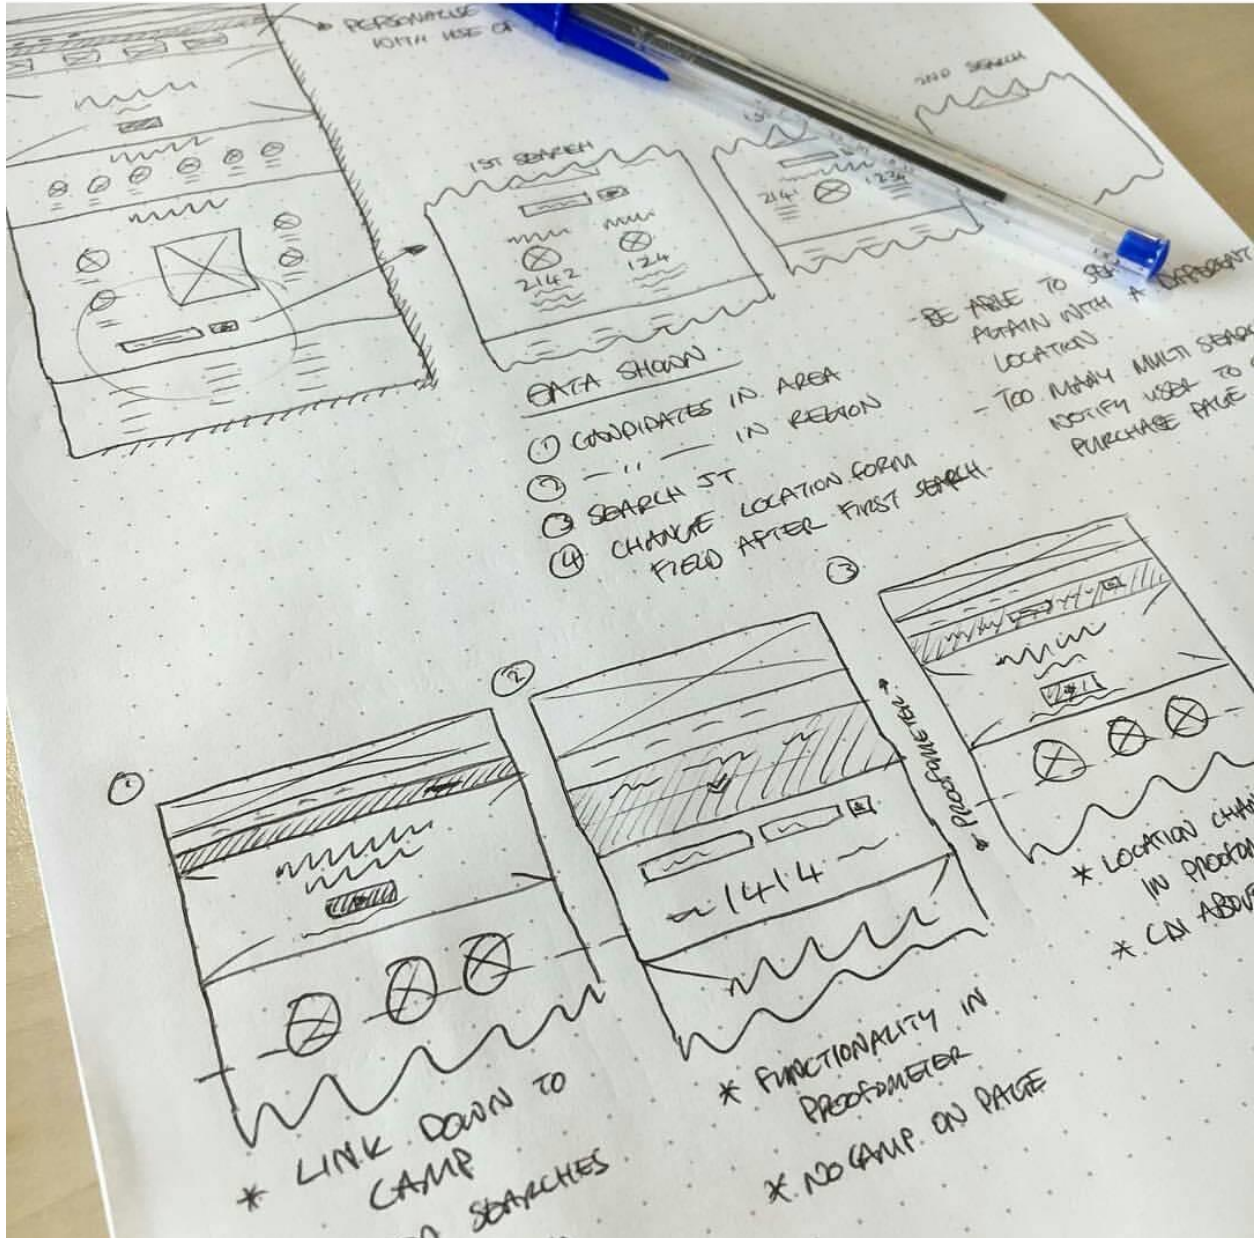 * PERSONALISE
WITH USE OF
1ST SEARCH
2142
124
2ND SEARCH
2141
DATA SHOWN
① CANDIDATES IN AREA
② — " — IN REGION
③ SEARCH JT
④ CHANGE LOCATION FORM
FIELD AFTER FIRST SEARCH
- BE ABLE TO
AGAIN WITH A DIFFERENT
LOCATION
- TOO MANY MULTI
NOTIFY USER TO
PURCHASE PAGE
①
②
③
1414
PROOFOMETER
* LINK DOWN TO
CAMP
SEARCHES
* FUNCTIONALITY IN
PROOFOMETER
* NO CAMP ON PAGE
* LOCATION
IN
*